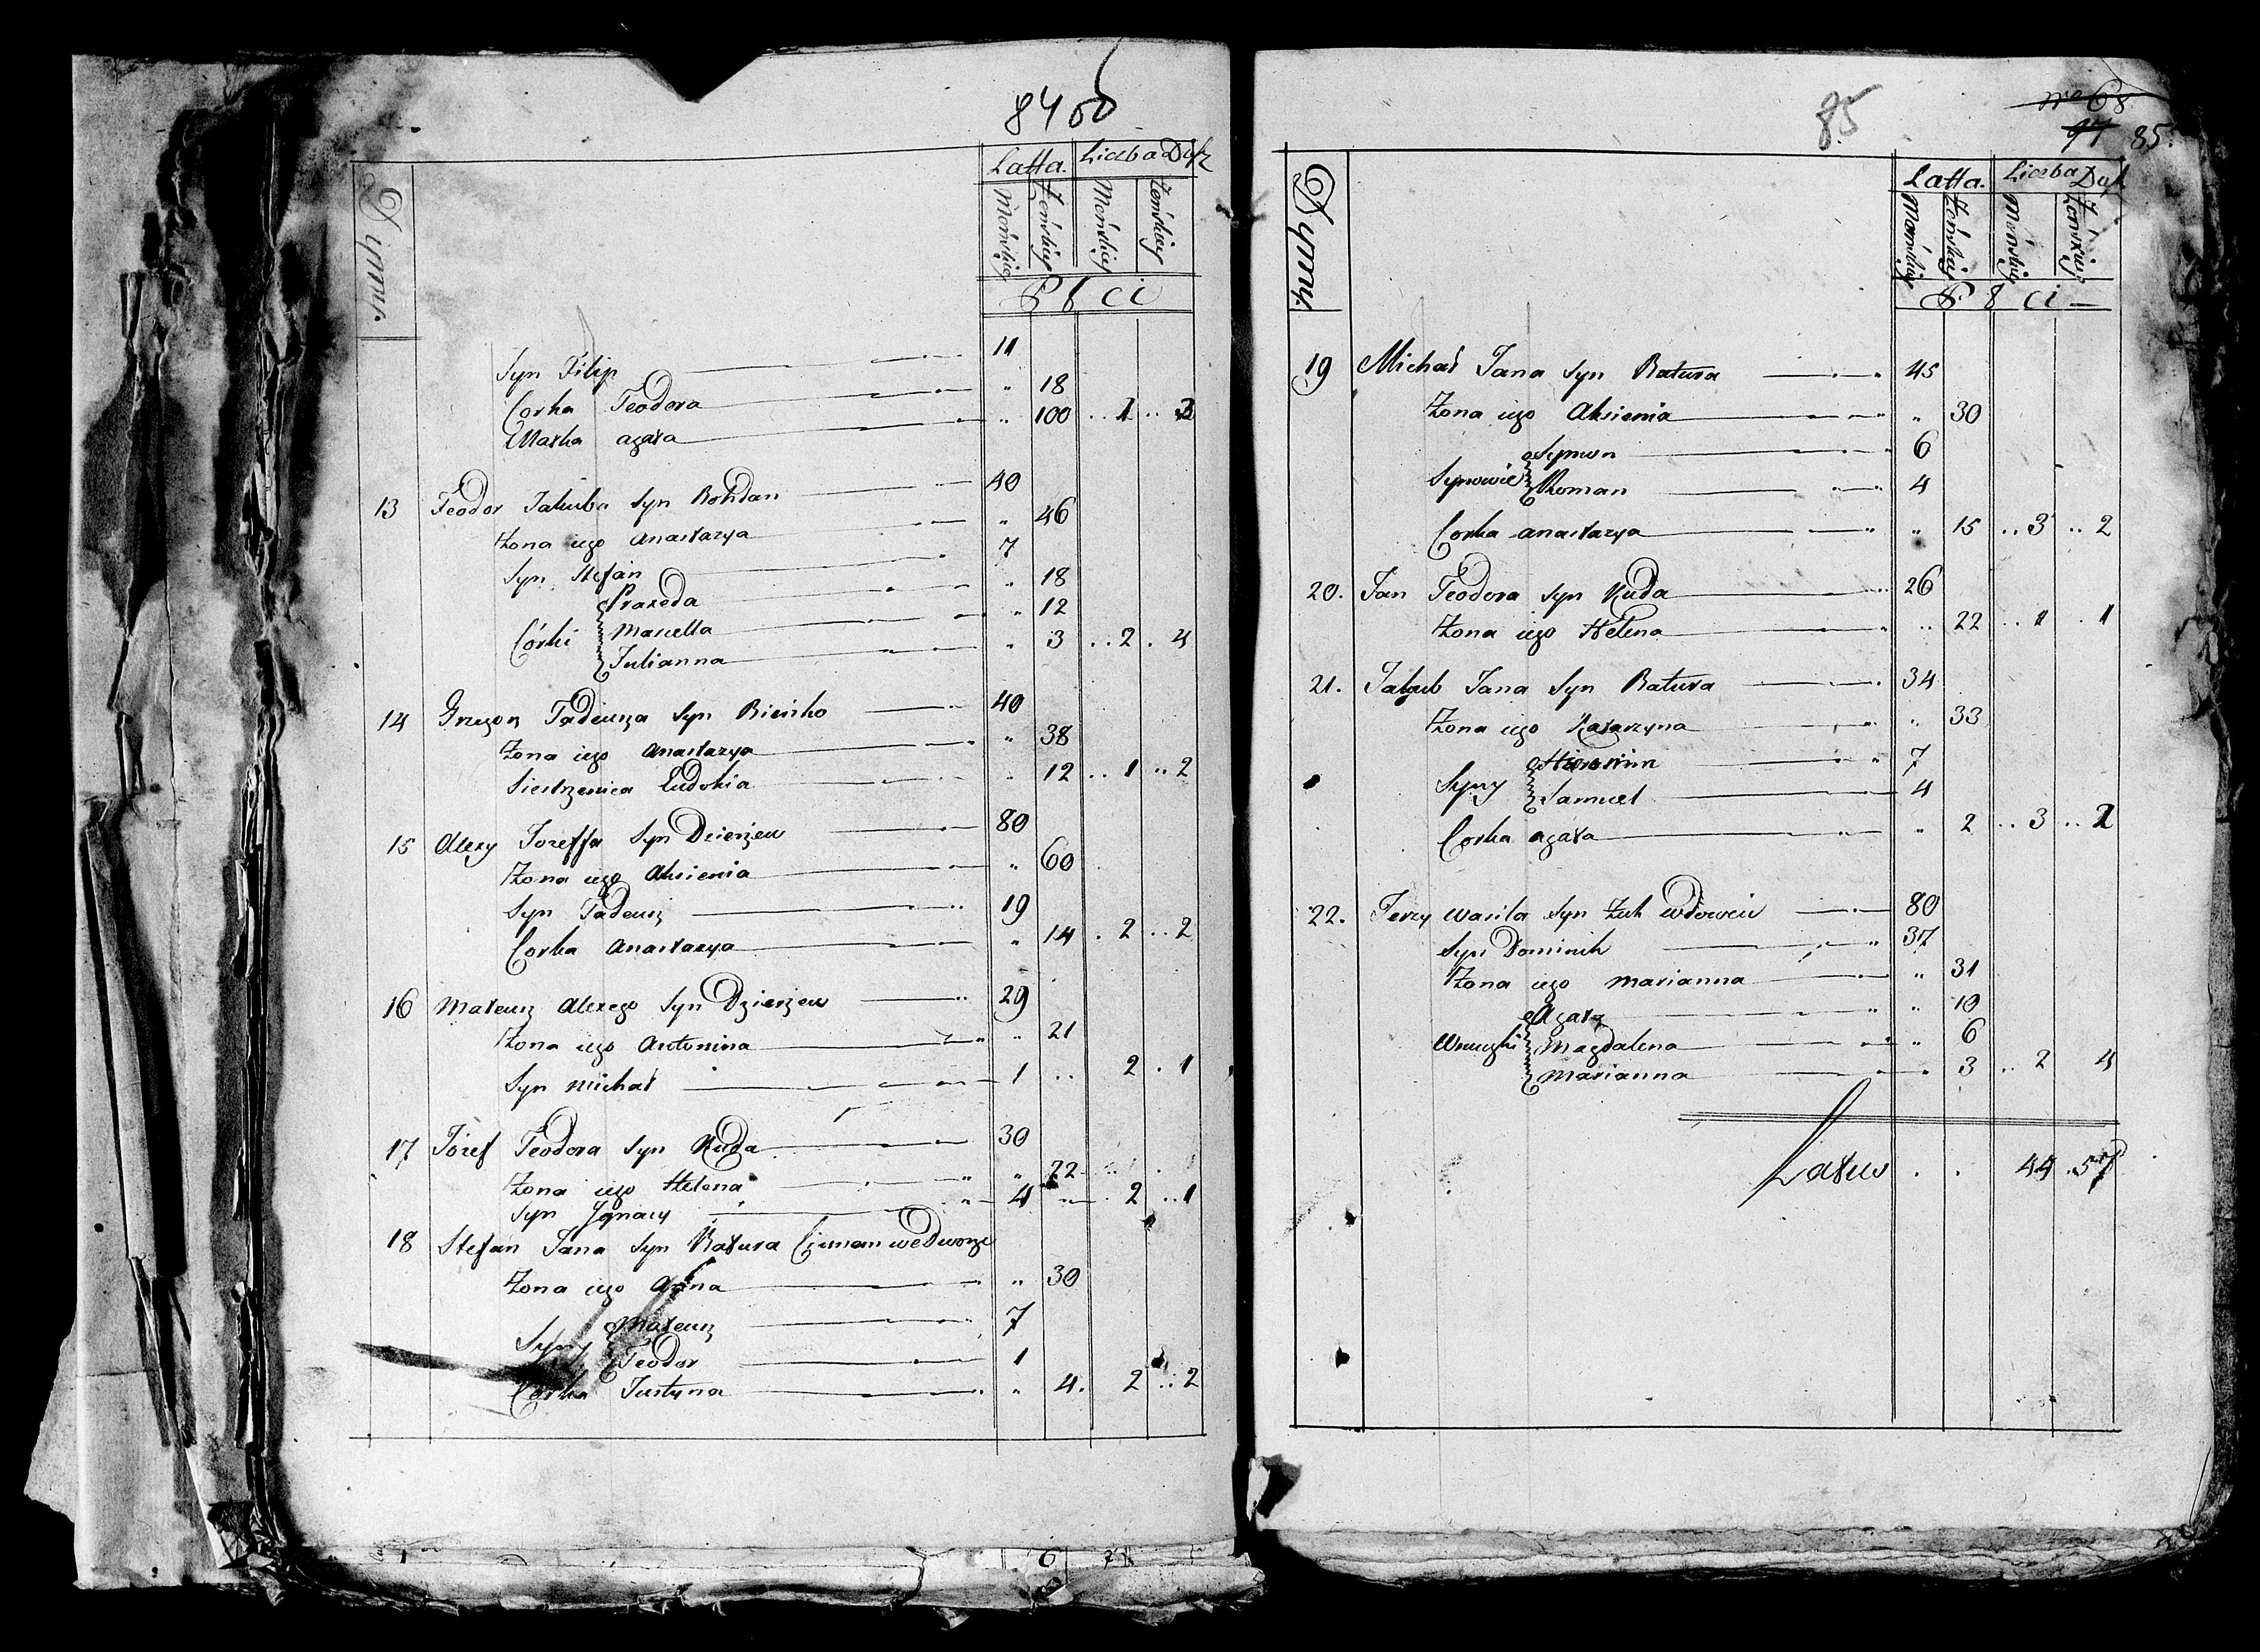 84 об
Dymy.
Latta. Liczba Dusz
Męskiey Zeńskiey Męskiey Zeńskiey
Płci
Syn Filip 11
Corka Teodora " 18
Matka agata " 100 .. 1 .. 3
13 Teodor Jakuba Syn Bohdan 40
Zona iego Anastazya " 46
Syn Stefan 7
Praxeda " 18
Córki Marcella " 12
Julianna " 3 .. 2 . 4
14 Grzegorz Tadeusza Syn Bieńko 40
Zona iego Anastazya " 38
Siestrzenica Eudokia " 12 .. 1 .. 2
15 Alexy Jozeffa Syn Dzierzew 80
Zona iego Aksienia " 60
Syn Tadeusz 19
Corka Anastazya " 14 . 2 .. 2
16 Mateusz Alexego Syn Dzierzew 29
Zona iego Antonina " 21
Syn Michał 1 .. 2 . 1
17 Józef Teodora Syn Kuda 30
Zona iego Helena " 22
Syn Jgnacy 4 " 2 .. 1
18 Stefan Jana Syn Batura Ciwunem we Dworze
Zona iego Anna " 30
Mateusz 7
Syny Teodor 1
Corka Justyna " 4. 2 .. 2
85
No 68
97 85.
Dymy.
Latta. Liczba Dusz
Męskiey Zeńskiey Męskiey Zeńskiey
Płci
19 Michał Jana Syn Batura 45
Zona iego Aksienia " 30
Symon 6
Synowie Roman 4
Corka anastazya " 15 .. 3 .. 2
20. Jan Teodora Syn Kuda 26
Zona iego Helena .. 22 .. 1 . 1
21. Jakub Jana Syn Batura 34
Zona iego Katarzyna " 33
Hieronim 7
Syny Samuel 4
Corka agata " 2 .. 3 .. 2
22. Jerzy Wasila Syn Zuk wdowiec 80
Syn Dominik 37
Zona iego Marianna " 31
Agata " 10
Wnuczki Magdalena " 6
Marianna " 3 .. 2 4
Latus . . 44 . 57